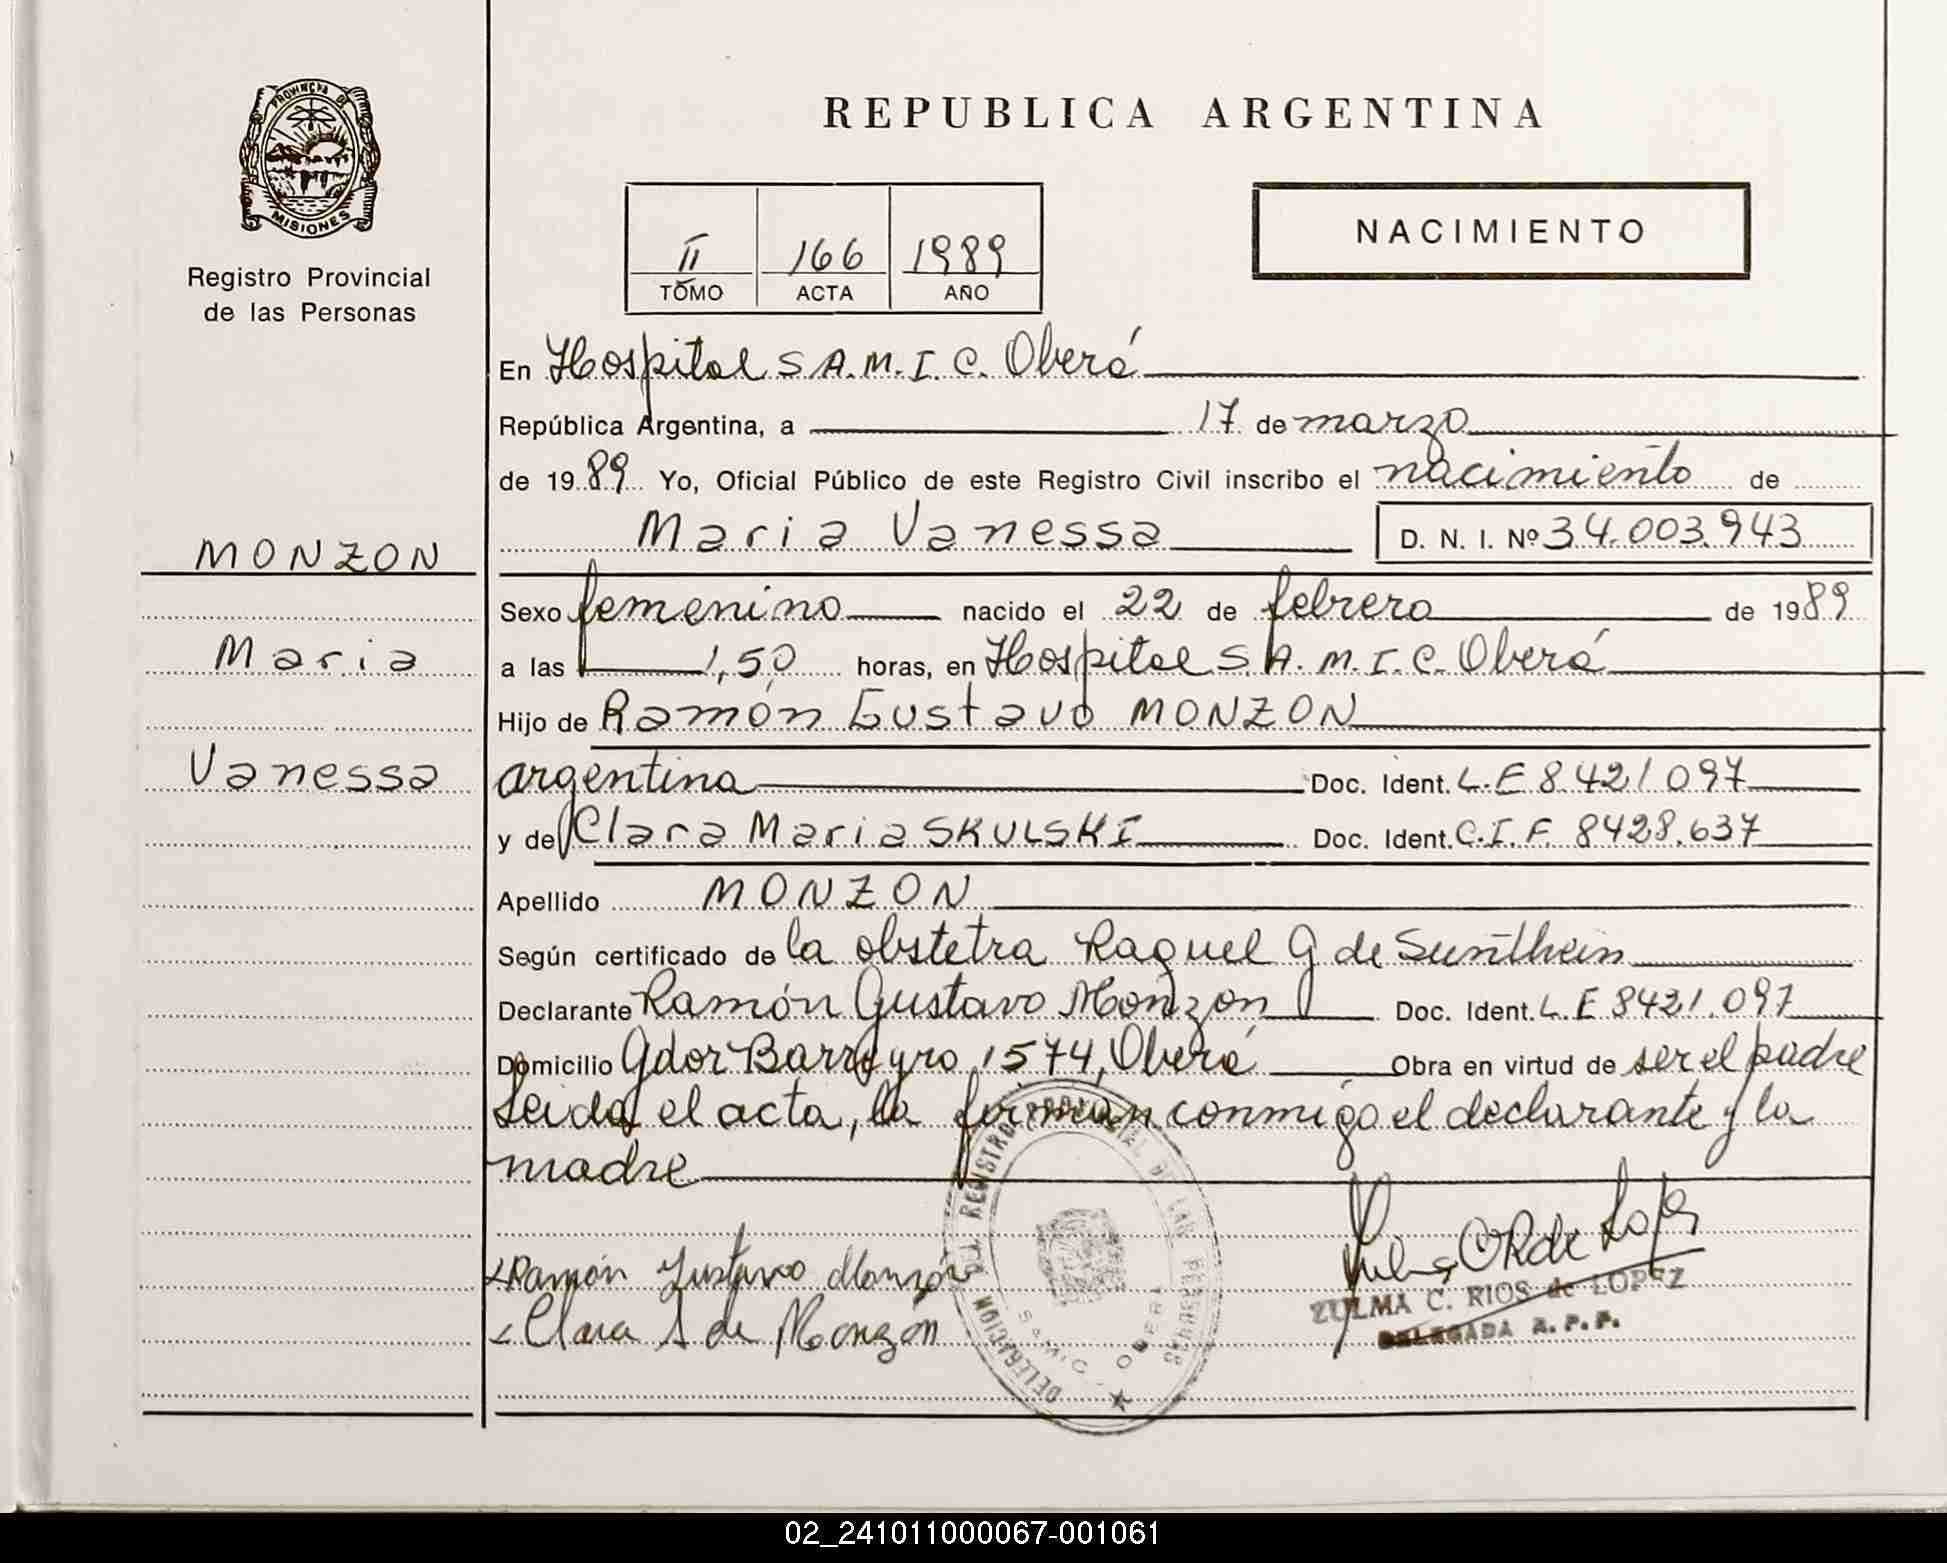 PROVINCIA DE
MISIONES
Registro Provincial
de las Personas
REPUBLICA ARGENTINA
II 166 1989
TOMO ACTA AÑO
NACIMIENTO
En Hospital S A.M.I.C. Oberá
República Argentina, a 17 de marzo
de 1989 Yo, Oficial Público de este Registro Civil inscribo el nacimiento de
Maria Vanessa D. N. I. Nº 34.003.943
MONZON
Sexo femenino nacido el 22 de febrero de 1989
Maria
a las 1,50 horas, en Hospital S.A.M.I.C. Oberá
Hijo de Ramón Gustavo MONZON
Vanessa
argentina Doc. Ident. L.E 8.421.097
y de Clara Maria SKULSKI Doc. Ident. C.I.F. 8428.637
Apellido MONZON
Según certificado de la obstetra Raquel G de
Declarante Ramón Gustavo Monzon Doc. Ident. L.E 8421.097
Domicilio Gdor Barreyro 1574, Oberá Obra en virtud de ser el padre
Leida el acta, la firman conmigo el declarante y la
madre
Ramón Gustavo Monzon
Clara S de Monzón
DELEGACION DEL REGISTRO PROVINCIAL DE LAS PERSONAS
SAMIC - OBERA
ZULMA C. RIOS de LOPEZ
DELEGADA R. P. P.
02_241011000067-001061